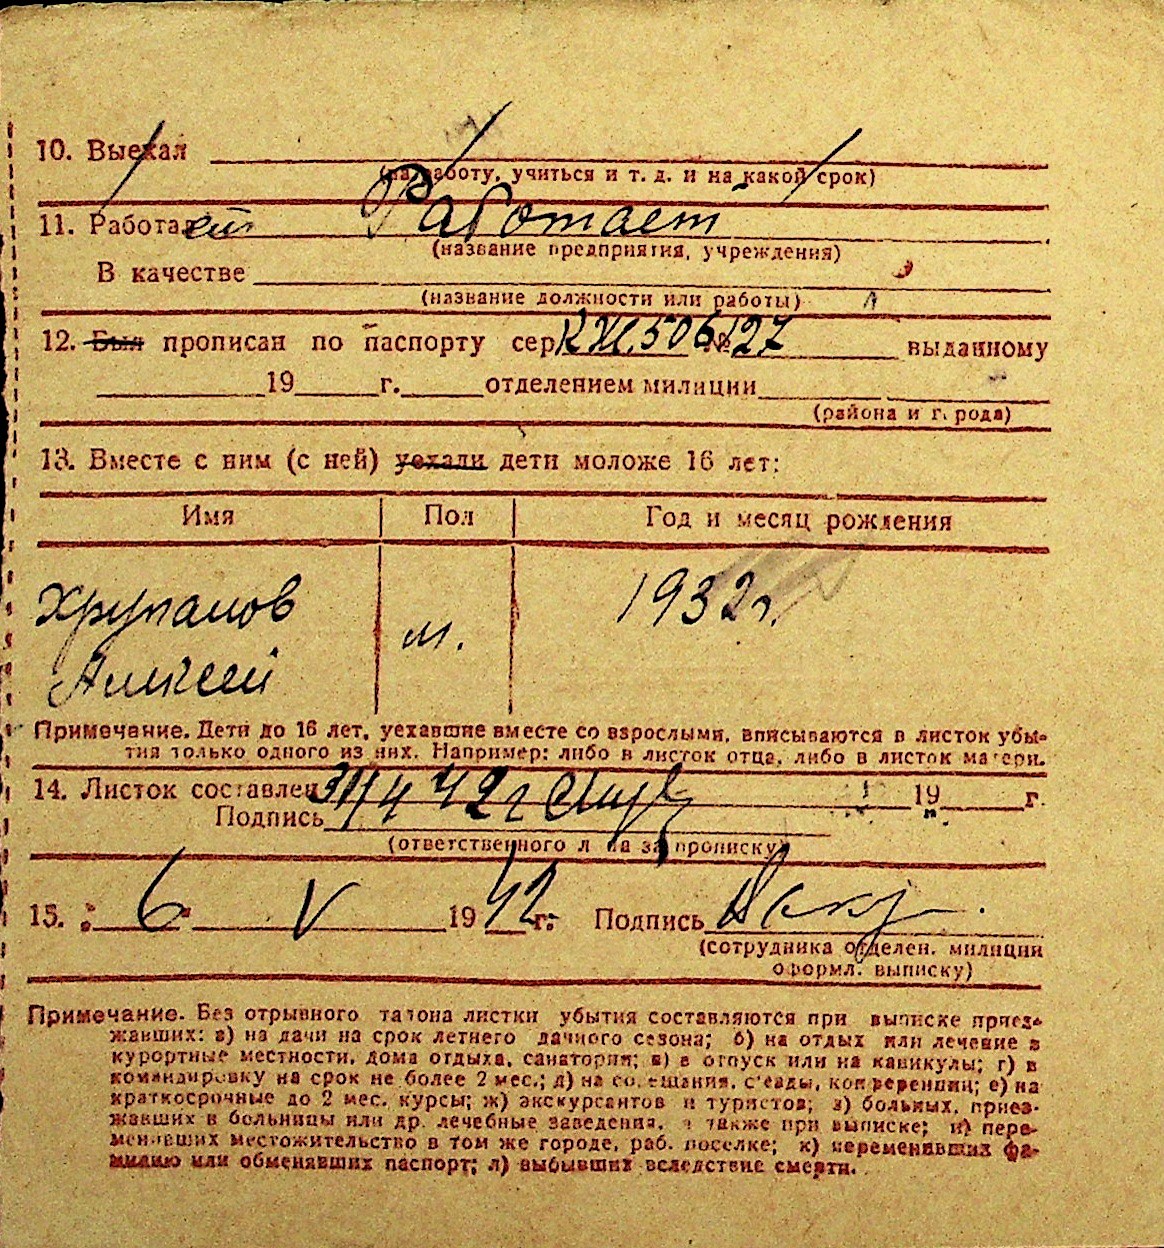 10. Выехал
(на работу, учиться и т. д. и на какой срок)
11. Работает Работает
(название предприятия, учреждения)
В качестве
(название должности или работы)
12. Был прописан по паспорту сер. КЖ 506127 выданному
19 г. отделением милиции
(района и города)
13. Вместе с ним (с ней) уехали дети моложе 16 лет:
Имя Пол Год и месяц рождения
Хрупалов м. 1932 г.
Алексей
Примечание. Дети до 16 лет, уехавшие вместе со взрослыми, вписываются в листок убы-
тия только одного из них. Например: либо в листок отца, либо в листок матери.
14. Листок составлен 42 г 19 г.
Подпись
(ответственного лица за прописку)
15. " 6 " V 1942 г. Подпись
(сотрудника отделен. милиции
оформл. выписку)
Примечание. Без отрывного талона листки убытия составляются при выписке приез-
жавших: а) на дачи на срок летнего дачного сезона; б) на отдых или лечение в
курортные местности, дома отдыха, санатории; в) в отпуск или на каникулы; г) в
командировку на срок не более 2 мес.; д) на совещания, с'езды, конференции; е) на
краткосрочные до 2 мес. курсы; ж) экскурсантов и туристов; з) больных, приез-
жавших в больницы или др. лечебные заведения, а также при выписке; и) пере-
менивших местожительство в том же городе, раб. поселке; к) переменивших фа-
милию или обменявших паспорт; л) выбывших вследствие смерти.